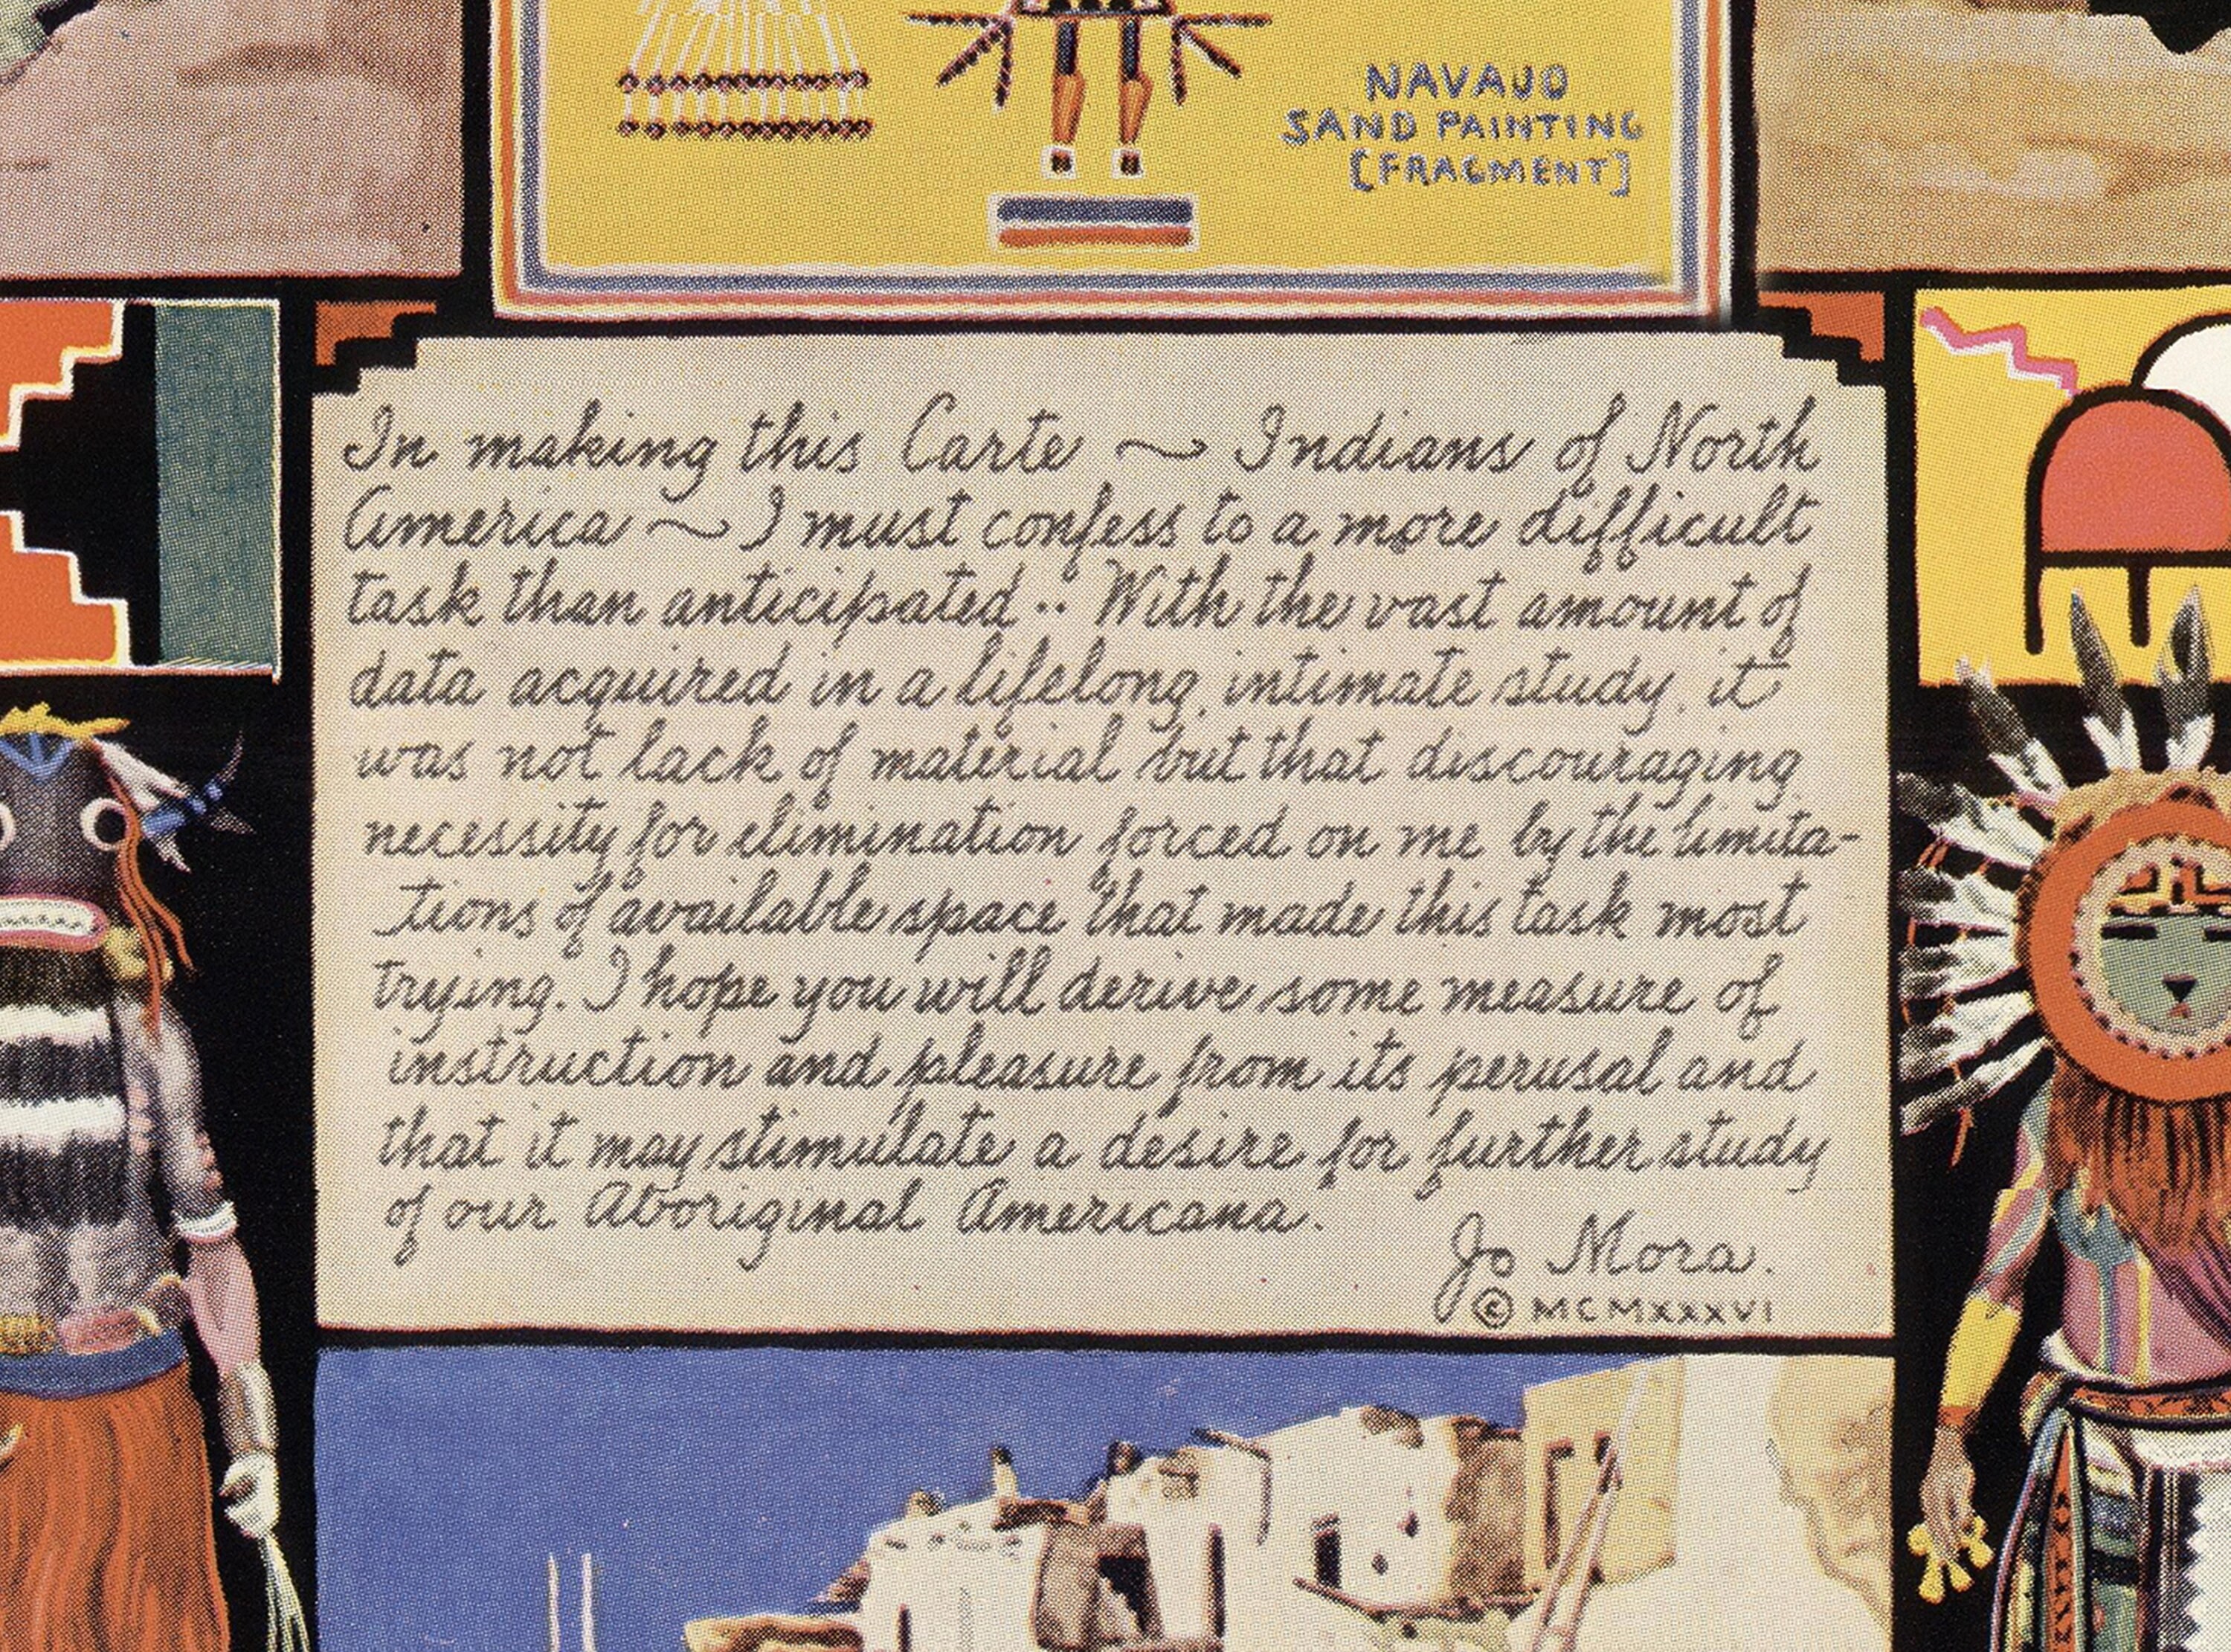 NAVAJO
SAND PAINTING
[FRAGMENT]
In making this Carte ~ Indians of North
America ~ I must confess to a more difficult
task than anticipated·· With the vast amount of
data acquired in a lifelong, intimate study, it
was not lack of material but that discouraging
necessity for elimination forced on me by the limita-
tions of available space that made this task most
trying. I hope you will derive some measure of
instruction and pleasure from its perusal and
that it may stimulate a desire for further study
of our Aboriginal Americana.
Jo Mora.
© MCMXXXVI